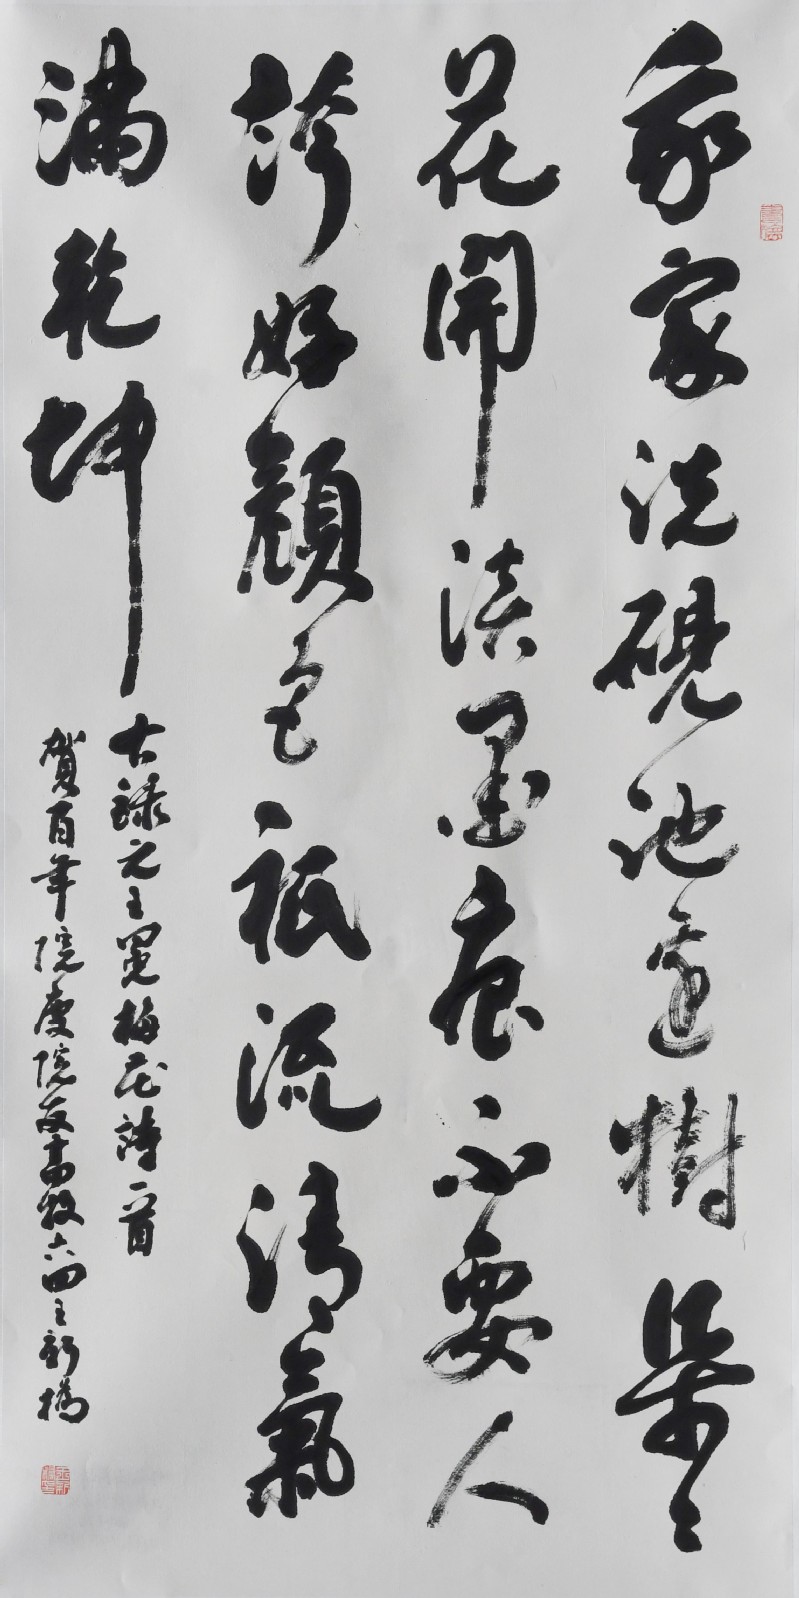 我家洗硯池邊樹朵〻
花開淡墨痕不要人
誇好顏色祇流清氣
滿乾坤
右錄元王冕梅花詩一首
賀百年院慶院友畜牧六四王新橋